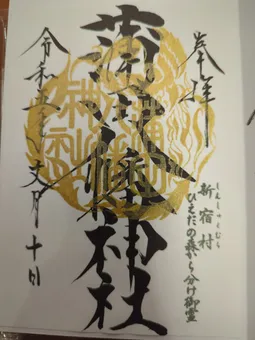 奉拝
新宿村
しんしゅくむら
ひえだの森から分け御霊
蒲田八幡神社
令和五年文月十日